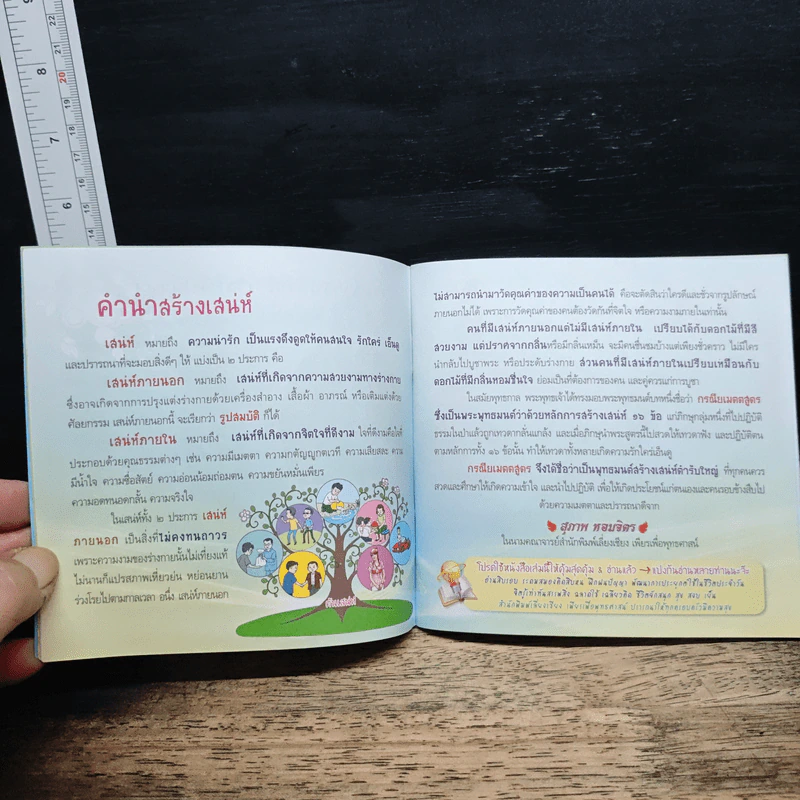 คำนำสร้างเสน่ห์
เสน่ห์ หมายถึง ความน่ารัก เป็นแรงดึงดูดให้คนสนใจ รักใคร่ เอ็นดู
และปรารถนาที่จะมอบสิ่งดีๆ ให้ แบ่งเป็น ๒ ประการ คือ
เสน่ห์ภายนอก หมายถึง เสน่ห์ที่เกิดจากความสวยงามทางร่างกาย
ซึ่งอาจเกิดจากการปรุงแต่งร่างกายด้วยเครื่องสำอาง เสื้อผ้า อาภรณ์ หรือเติมแต่งด้วย
ศัลยกรรม เสน่ห์ภายนอกนี้ จะเรียกว่า รูปสมบัติ ก็ได้
เสน่ห์ภายใน หมายถึง เสน่ห์ที่เกิดจากจิตใจที่ดีงาม ใจที่ดีงามคือใจที่
ประกอบด้วยคุณธรรมต่างๆ เช่น ความมีเมตตา ความกตัญญูกตเวที ความเสียสละ ความ
มีน้ำใจ ความซื่อสัตย์ ความอ่อนน้อมถ่อมตน ความขยันหมั่นเพียร
ความอดทนอดกลั้น ความจริงใจ
ในเสน่ห์ทั้ง ๒ ประการ เสน่ห์
ภายนอก เป็นสิ่งที่ไม่คงทนถาวร
เพราะความงามของร่างกายนั้นไม่เที่ยงแท้
ไม่นานก็แปรสภาพเหี่ยวย่น หย่อนยาน
ร่วงโรยไปตามกาลเวลา อนึ่ง เสน่ห์ภายนอก
ไม่สามารถนำมาวัดคุณค่าของความเป็นคนได้ คือจะตัดสินว่าใครดีและชั่วจากรูปลักษณ์
ภายนอกไม่ได้ เพราะการวัดคุณค่าของคนต้องวัดกันที่จิตใจ หรือความงามภายในเท่านั้น
คนที่มีเสน่ห์ภายนอกแต่ไม่มีเสน่ห์ภายใน เปรียบได้กับดอกไม้ที่มีสี
สวยงาม แต่ปราศจากกลิ่นหรือมีกลิ่นเหม็น จะมีคนชื่นชมบ้างแต่เพียงชั่วคราว ไม่มีใคร
นำกลับไปบูชาพระ หรือประดับร่างกาย ส่วนคนที่มีเสน่ห์ภายในเปรียบเหมือนกับ
ดอกไม้ที่มีกลิ่นหอมชื่นใจ ย่อมเป็นที่ต้องการของคน และคู่ควรแก่การบูชา
ในสมัยพุทธกาล พระพุทธเจ้าได้ทรงมอบพระพุทธมนต์บทหนึ่งชื่อว่า กรณียเมตตสูตร
ซึ่งเป็นพระพุทธมนต์ว่าด้วยหลักการสร้างเสน่ห์ ๑๖ ข้อ แก่ภิกษุกลุ่มหนึ่งที่ไปปฏิบัติ
ธรรมในป่าแล้วถูกเทวดากลั่นแกล้ง และเมื่อภิกษุนำพระสูตรนี้ไปสวดให้เทวดาฟัง และปฏิบัติตน
ตามหลักการทั้ง ๑๖ ข้อนั้น ทำให้เทวดาทั้งหลายเกิดความรักใคร่เอ็นดู
กรณียเมตตสูตร จึงได้ชื่อว่าเป็นพุทธมนต์สร้างเสน่ห์ตำรับใหญ่ ที่ทุกคนควร
สวดและศึกษาให้เกิดความเข้าใจ และนำไปปฏิบัติ เพื่อให้เกิดประโยชน์แก่ตนเองและคนรอบข้างสืบไป
ด้วยความเมตตาและปรารถนาดีจาก
สุภาพ หอมจิตร
ในนามคณาจารย์สำนักพิมพ์เลี่ยงเชียง เพียรเพื่อพุทธศาสน์
โปรดใช้หนังสือเล่มนี้ให้คุ้มสุดคุ้ม & อ่านแล้ว → แบ่งกันอ่านหลายท่านนะจ๊ะ